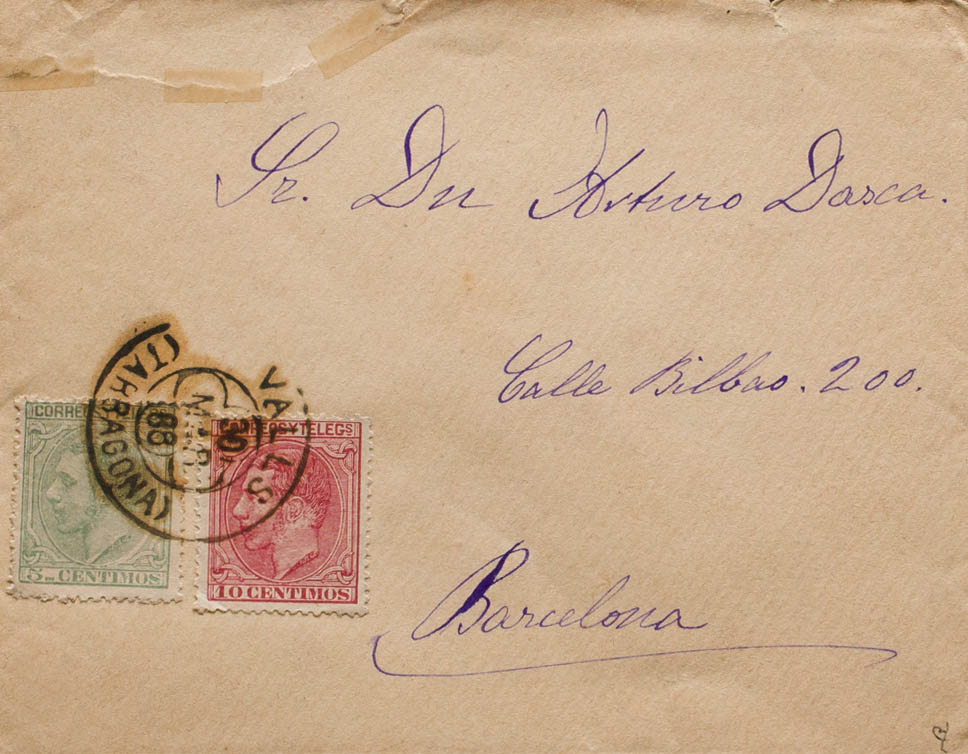 Sr. Dn Arturo Dasca.
Calle Bilbao. 200.
Barcelona
VALLS
(TARRAGONA)
88
CORREOS Y TELEGS
10 CENTIMOS
CORREOS
5 CENTIMOS